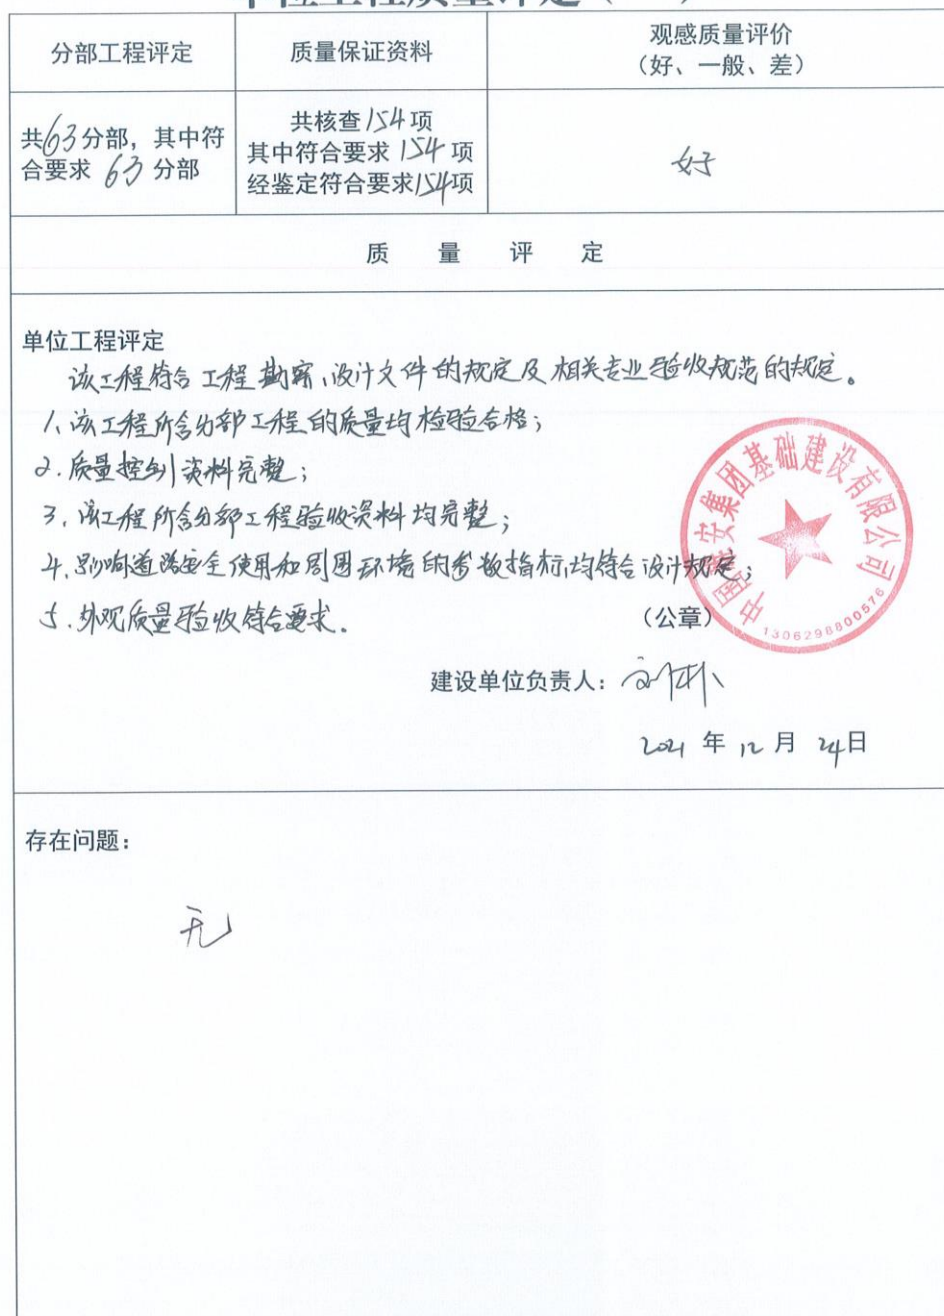 单位工程质量评定
分部工程评定
质量保证资料
观感质量评价
（好、一般、差）
共63分部，其中符
合要求 63 分部
共核查154项
其中符合要求 154 项
经鉴定符合要求154项
好
质 量 评 定
单位工程评定
该工程符合工程勘察、设计文件的规定及相关专业验收规范的规定。
1、该工程所含分部工程的质量均检验合格；
2.质量控制资料完整；
3、该工程所含分部工程验收资料均完整；
4、影响道路安全使用和周围环境的参数指标均符合设计规定；
5.外观质量验收符合要求.
中国雄安集团基础建设有限公司
1306298800576
（公章）
建设单位负责人：
2021 年 12 月 24日
存在问题：
无